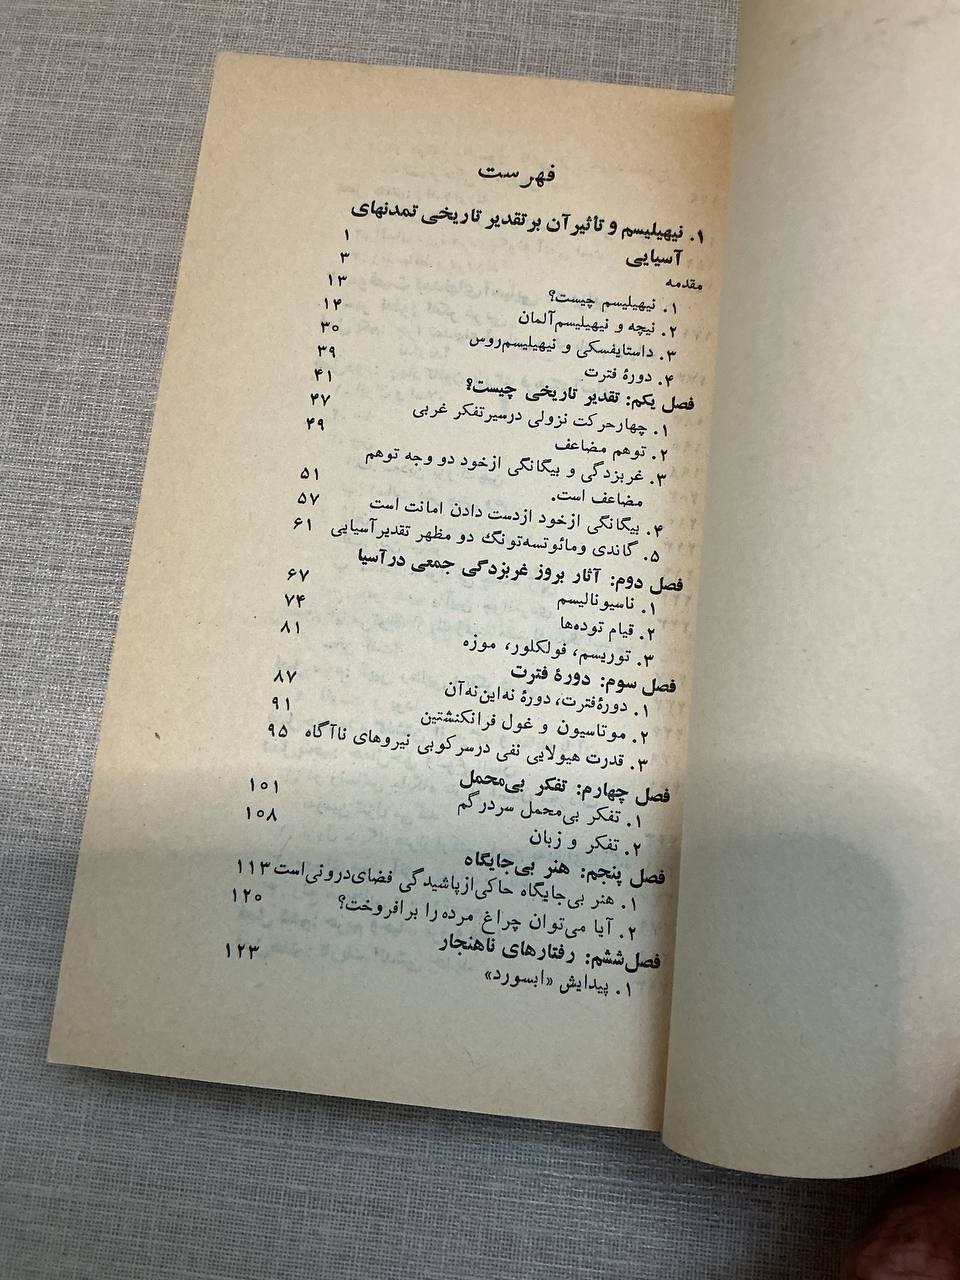 فهرست
۱. نیهیلیسم و تأثیر آن بر تقدیر تاریخی تمدنهای
آسیایی ۱
مقدمه ۳
۱. نیهیلیسم چیست؟ ۱۳
۲. نیچه و نیهیلیسم آلمان ۱۴
۳. داستایفسکی و نیهیلیسم روس ۳۰
۴. دورهٔ فترت ۳۹
فصل یکم: تقدیر تاریخی چیست؟ ۴۱
۱. چهار حرکت نزولی در سیر تفکر غربی ۴۷
۲. توهم مضاعف ۴۹
۳. غربزدگی و بیگانگی از خود دو وجه توهم
مضاعف است. ۵۱
۴. بیگانگی از خود از دست دادن امانت است ۵۷
۵. گاندی و مائوتسه‌تونگ دو مظهر تقدیر آسیایی ۶۱
فصل دوم: آثار بروز غربزدگی جمعی در آسیا
۱. ناسیونالیسم ۶۷
۲. قیام توده‌ها ۷۴
۳. توریسم، فولکلور، موزه ۸۱
فصل سوم: دورهٔ فترت
۱. دورهٔ فترت، دورهٔ نه این نه آن ۸۷
۲. موتاسیون و غول فرانکنشتین ۹۱
۳. قدرت هیولایی نفی در سرکوبی نیروهای ناآگاه ۹۵
فصل چهارم: تفکر بی‌محمل
۱. تفکر بی‌محمل سردرگم ۱۰۱
۲. تفکر و زبان ۱۰۸
فصل پنجم: هنر بی‌جایگاه
۱. هنر بی‌جایگاه حاکی از پاشیدگی فضای درونی است ۱۱۳
۲. آیا می‌توان چراغ مرده را برافروخت؟ ۱۲۰
فصل ششم: رفتارهای ناهنجار
۱. پیدایش «ابسورد» ۱۲۳